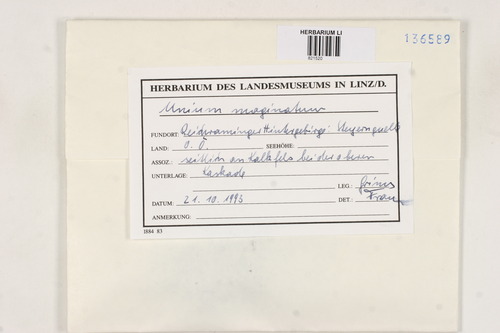 HERBARIUM LI
136589
HERBARIUM DES LANDESMUSEUMS IN LINZ/D.
Mnium marginatum
FUNDORT: Reichraminger Hintergebirge:
LAND: O.Ö. SEEHÖHE:
ASSOZ.: seitlich an Kalkfels bei der oberen
UNTERLAGE: Kaskade
LEG.: Grims
DATUM: 21.10.1993 DET.: Franz
ANMERKUNG:
1884 83